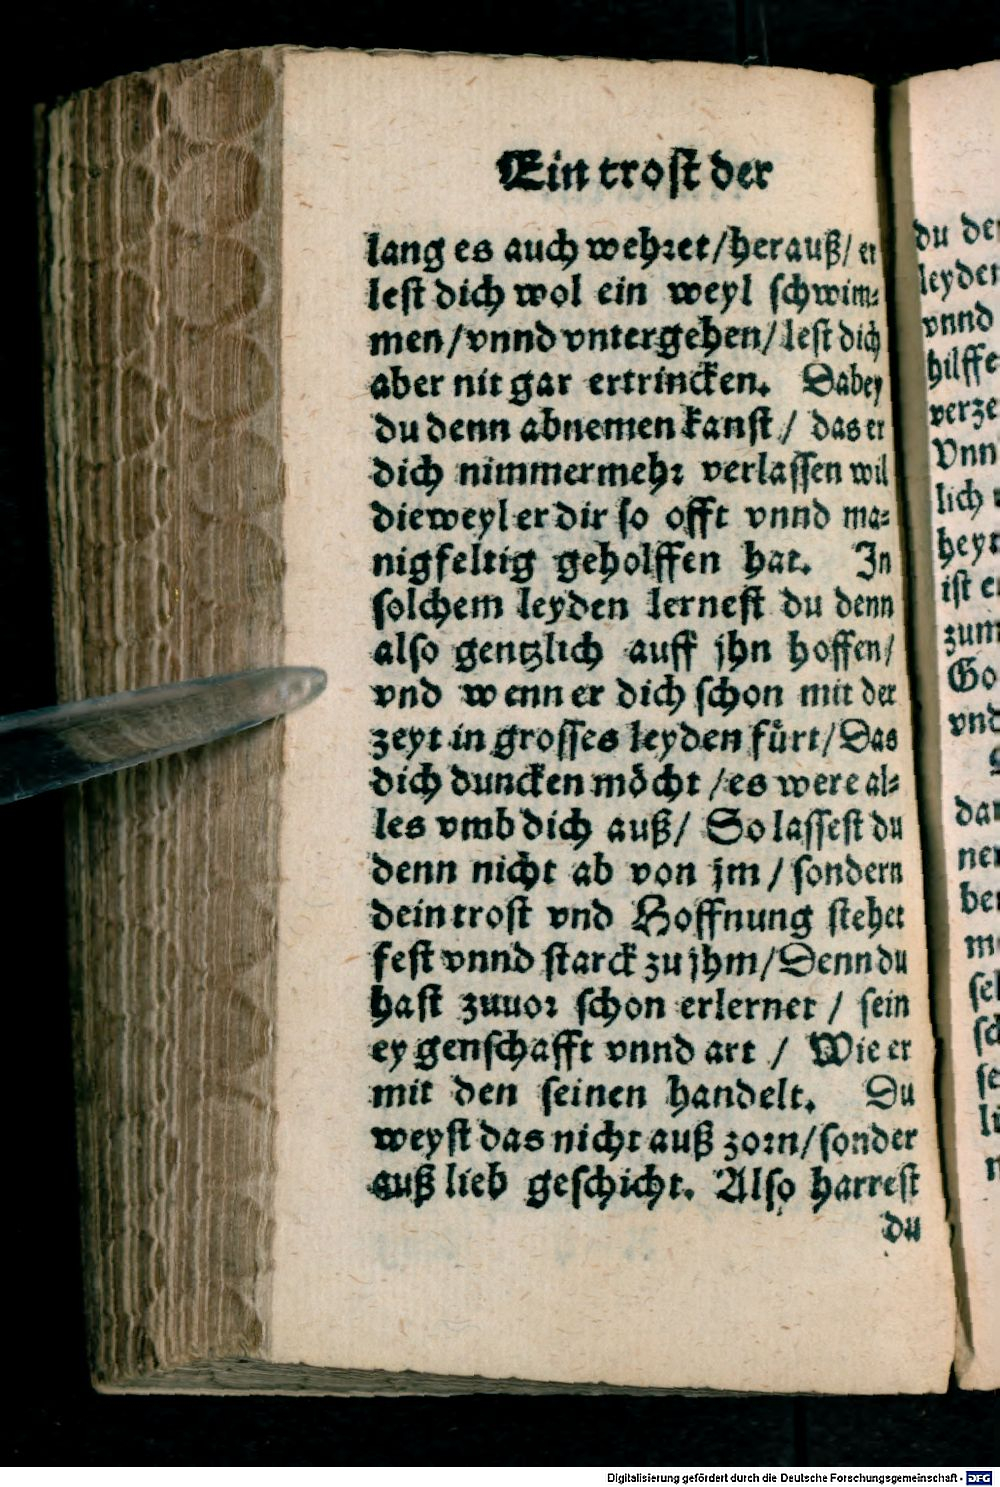 Ein trost der
lang es auch wehret/herauß/ er
lest dich wol ein weyl schwim⸗
men/vnnd vntergehen/lest dich
aber nit gar ertrincken. Dabey
du denn abnemen kanst/ das er
dich nimmermehr verlassen wil
dieweyl er dir so offt vnnd ma⸗
nigfeltig geholffen hat. In
solchem leyden lernest du denn
also gentzlich auff jhn hoffen/
vnd wenn er dich schon mit der
zeyt in grosses leyden fürt/Das
dich duncken möcht/es were al⸗
les vmb dich auß/ So lassest du
denn nicht ab von jm/sondern
dein trost vnd Hoffnung stehet
fest vnnd starck zu jhm/Denn du
hast zuuor schon erlernet/ sein
eygenschafft vnnd art/ Wie er
mit den seinen handelt. Du
weyst das nicht auß zorn/sonder
auß lieb geschicht. Also harrest
du
vnnd
hilffe
lich
ist
vnd
Digitalisierung gefördert durch die Deutsche Forschungsgemeinschaft - DFG